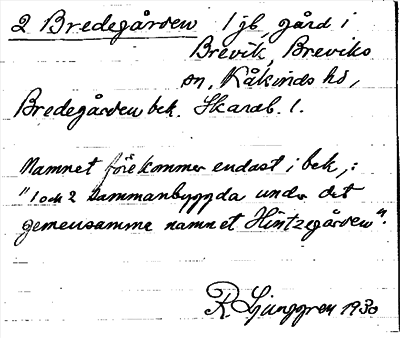 2 Bredegården 1 jb, gård i
Brevik, Breviks
sn, Kåkinds hd,
Bredegården bek. Skarab. l.
Namnet förekommer endast i bek,:
"1 och 2 sammanbyggda under det
gemensamma namnet Hintzegården".
R. Ljunggren 1930